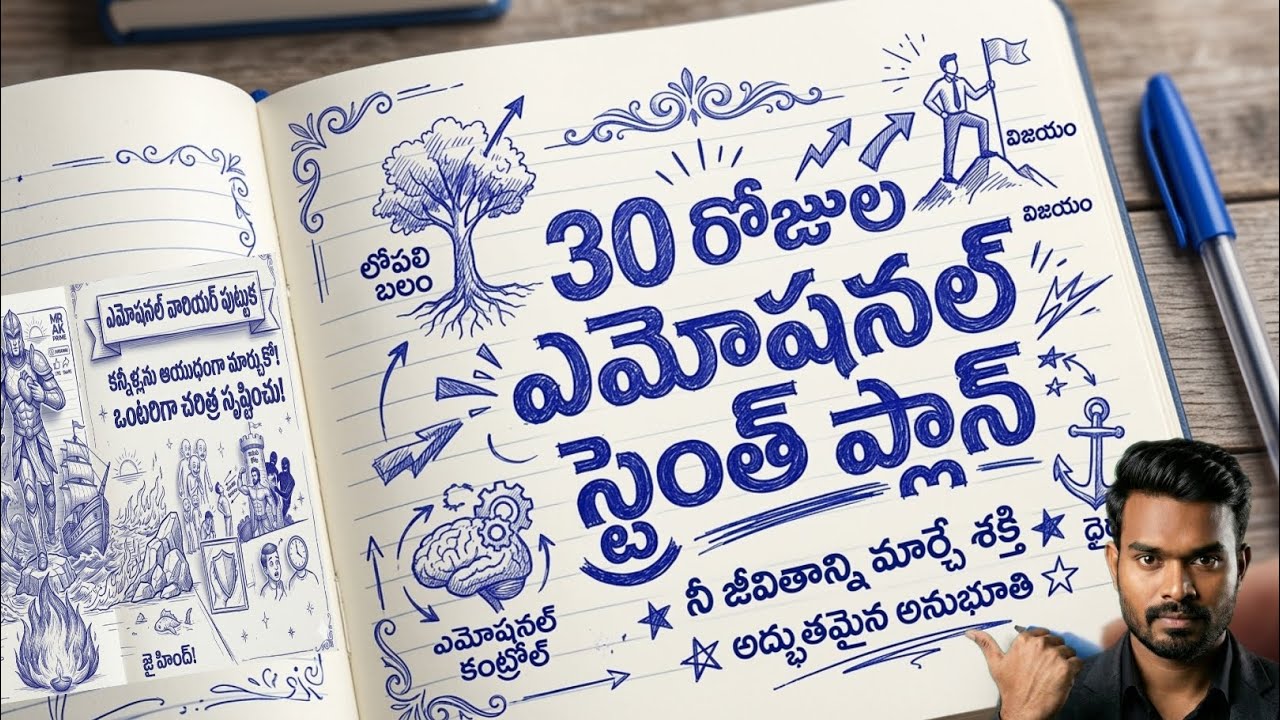 ఎమోషనల్ వారియర్ పుట్టుక
MR
AK
PRIME
కన్నీళ్లను ఆయుధంగా మార్చుకో!
ఒంటరిగా చరిత్ర సృష్టించు!
జై హింద్!
లోపలి
బలం
విజయం
విజయం
30 రోజుల
ఎమోషనల్
స్ట్రెంత్ ప్లాన్
నీ జీవితాన్ని మార్చే శక్తి
అద్భుతమైన అనుభూతి
ఎమోషనల్
కంట్రోల్